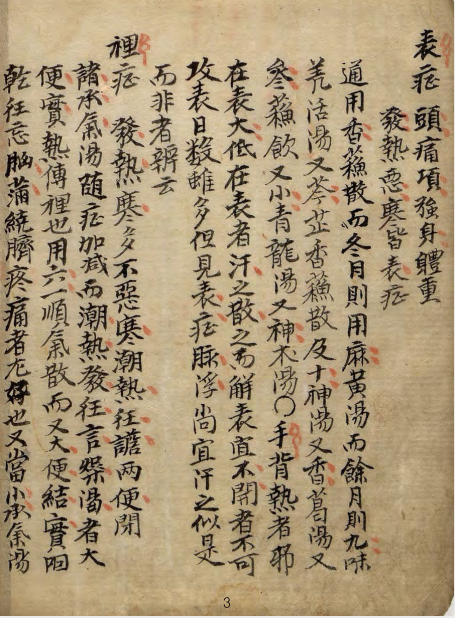 表症 頭痛項強身軆重
發熱惡寒皆表症
通用香蘓散而冬月則用麻黃湯而餘月則九味
羌活湯又芎芷香蘓散及十神湯又香葛湯又
參蘓飮又小青龍湯又神朮湯〇手背熱者邪
在表大低在表者汗之散之而解表宜不開者不可
攻表日数雖多但見表症脉浮尚宜汗之似是
而非者辨云
裡症 發熱寒多不惡寒潮熱狂譫两便閉
諸承氣湯随症加减而潮熱發狂言燥渴者大
便實熱傳裡也用六一順氣散而又大便結實
乾狂忘胸滿繞臍疼痛者尤好也又當小承氣湯
3